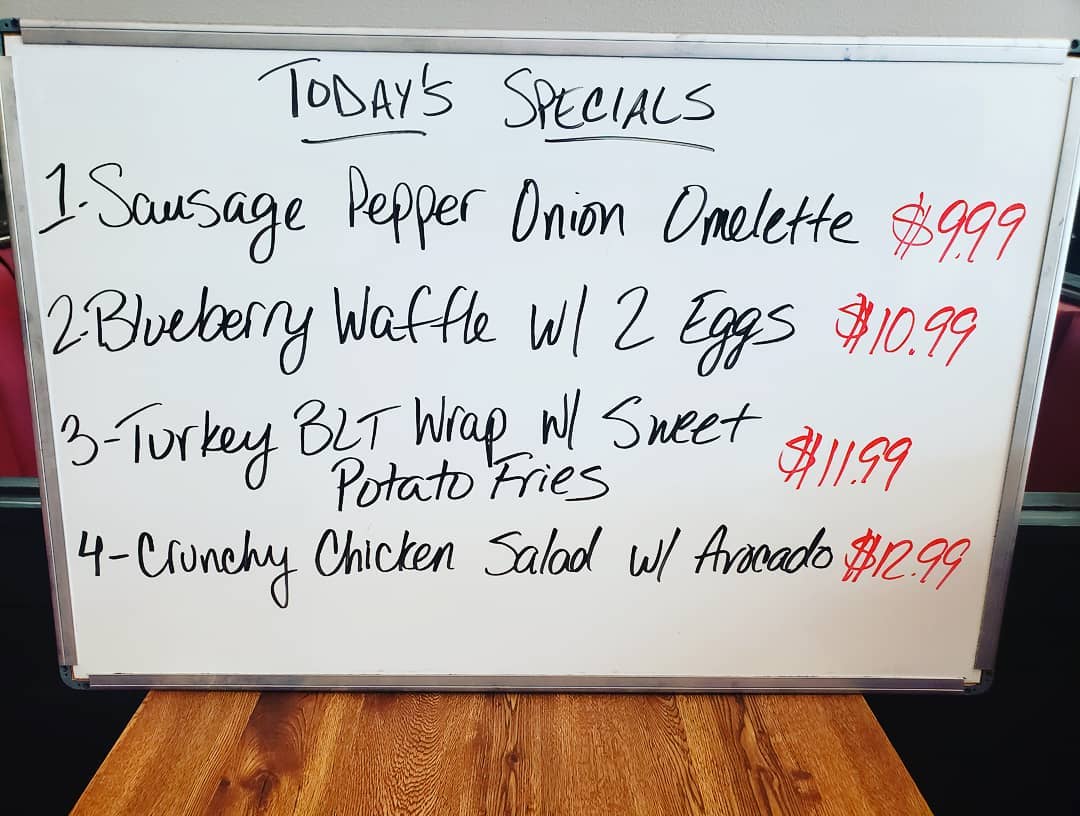 TODAY'S SPECIALS
1-Sausage Pepper Onion Omelette $9.99
2-Blueberry Waffle w/ 2 Eggs $10.99
3-Turkey BLT Wrap w/ Sweet
Potato Fries $11.99
4-Crunchy Chicken Salad w/ Avocado $12.99